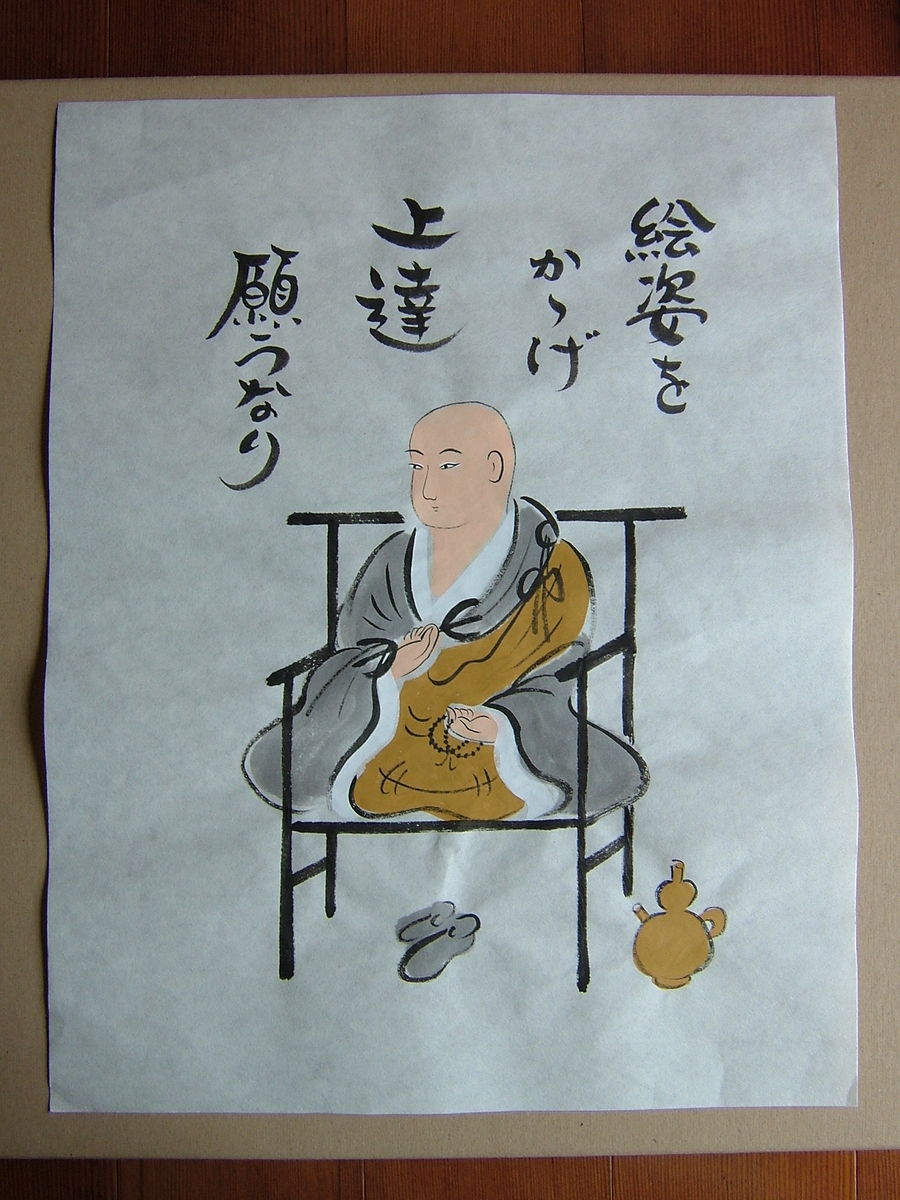 絵姿を
かゝげ
上達
願うなり